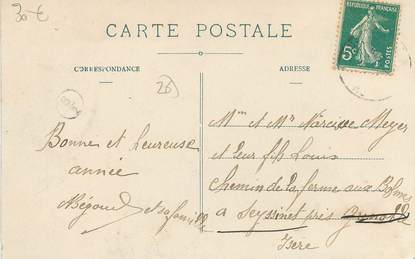 30 €
CARTE POSTALE
RÉPUBLIQUE FRANÇAISE
5c
POSTES
CORRESPONDANCE
ADRESSE
(26)
Bonne et heureuse
année
Bégou et sa famille
Mme et Mr Narcisse Meyer
et leur fils Louis
chemin de la ferme aux Balmes
a Seyssinet près Grenoble
Isere